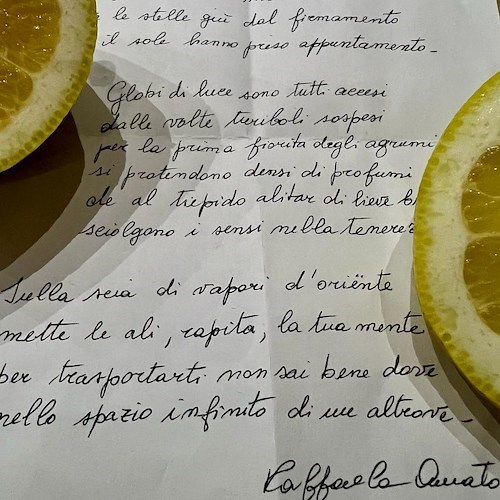 le stelle giù dal firmamento
il sole hanno preso appuntamento_
Globi di luce sono tutti accesi
dalle volte turiboli sospesi
per la prima fiorita degli agrumi
si protendono densi di profumi
che al tiepido alitar di lieve
sciolgono i sensi nella
Sulla scia di vapori d'oriënte
mette le ali, rapita, la tua mente
per trasportarti non sai bene dove
nello spazio infinito di un altrove_
Raffaela Amato